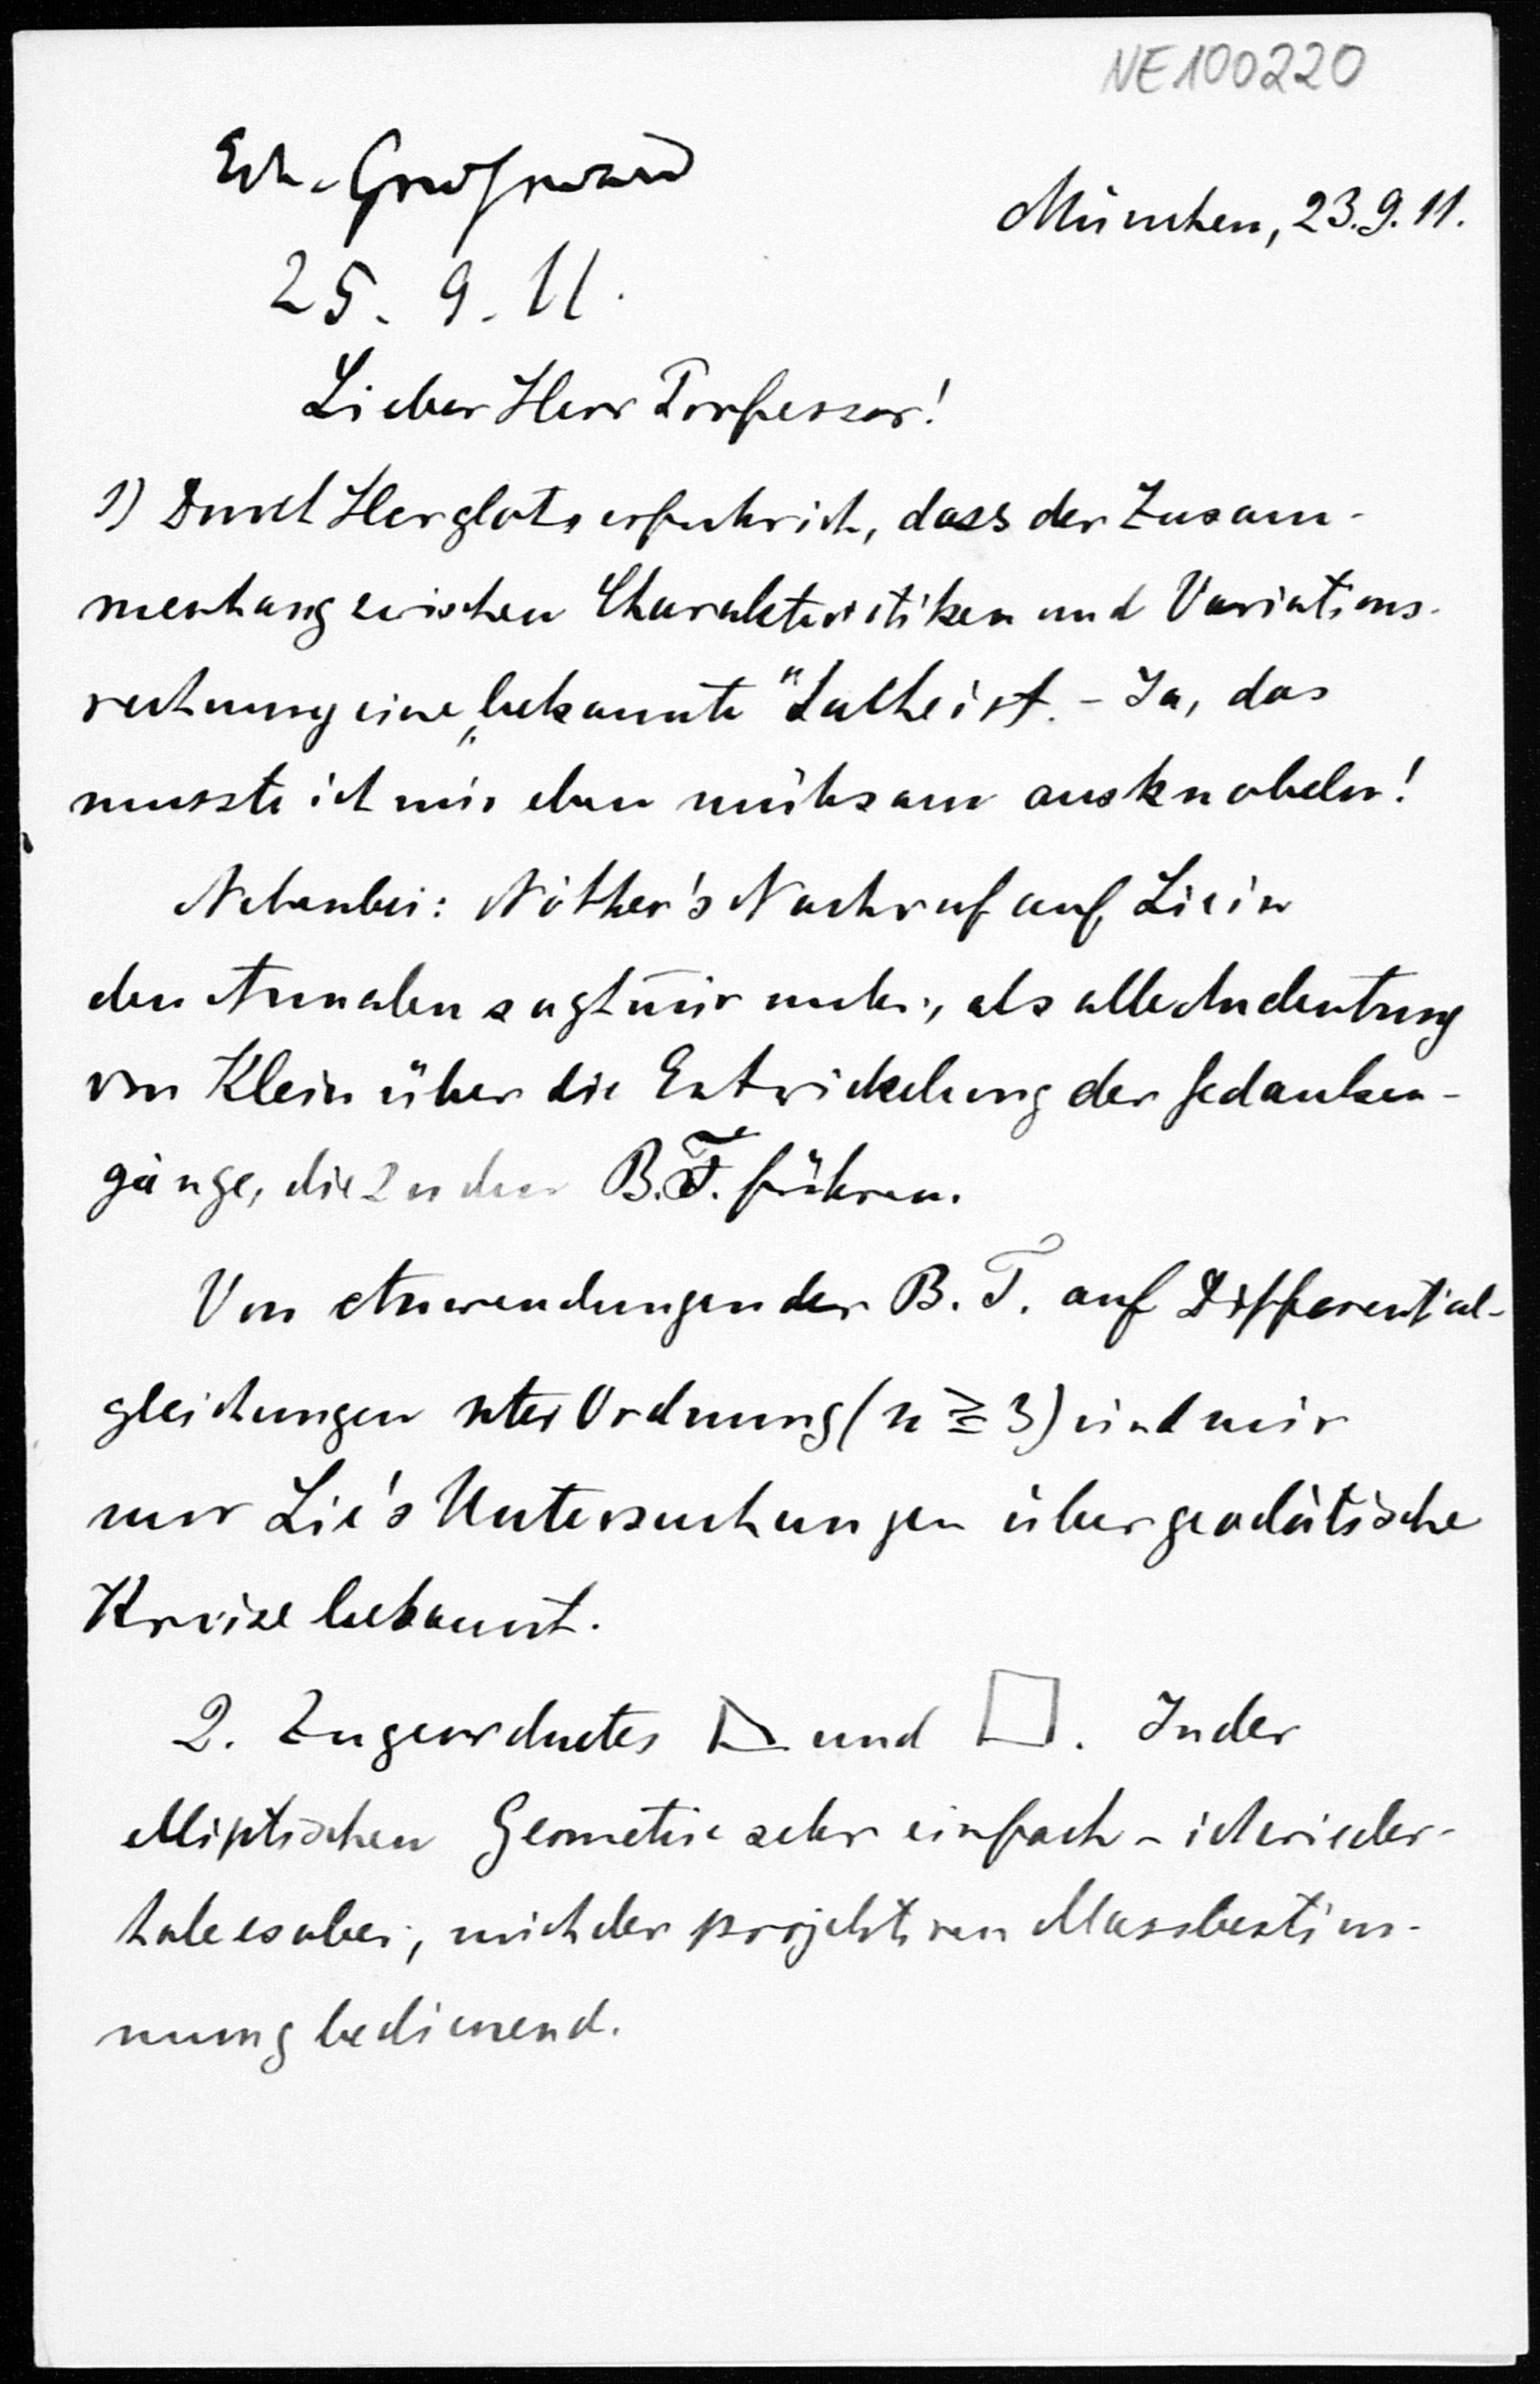 NE100220
München, 23.9.11.
25. 9. 11.
Lieber Herr Professor!
1) Durch Herglotz erfuhr ich, dass der Zusam-
menhang zwischen Charakteristiken und Variations-
rechnung eine „bekannte" Sache ist. - Ja, das
musste ich mir eben mühsam ausknobeln!
Nebenbei: Nöther's Nachruf auf Lie in
den Annalen sagt mir mehr, als alle Andeutung
von Klein über die Entwickelung der Gedanken-
gänge, die zu den B.T. führen.
Von Anwendungen der B.T. auf Differential-
gleichungen nter Ordnung (n ≧ 3) sind mir
nur Lie's Untersuchungen über geodätische
Kreise bekannt.
2. Zugeordnetes und . In der
elliptischen Geometrie sehr einfach - ich wieder-
hole es aber, mich der projektiven Massbestim-
mung bedienend.